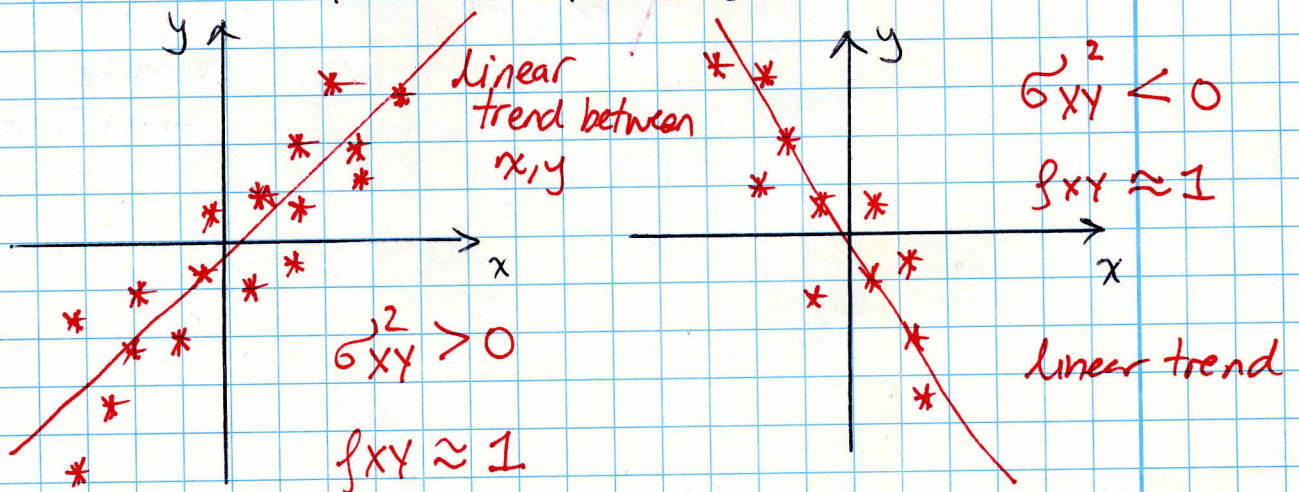 y
linear
trend between
x, y
x
σ²XY > 0
ρXY ≈ 1
y
σ²XY < 0
ρXY ≈ 1
x
linear trend